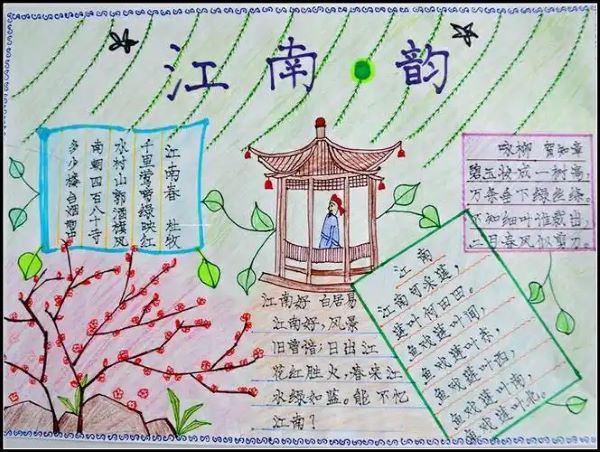 江南·韵
江南春 杜牧
千里莺莺绿映红
水村山郭酒旗风
南朝四百八十寺
多少楼台烟雨中
咏柳 贺知章
碧玉妆成一树高,
万条垂下绿丝绦。
不知细叶谁裁出,
二月春风似剪刀。
江南好 白居易
江南好,风景
旧曾谙,日出江
花红胜火,春来江
水绿如蓝。能不忆
江南?
江南
江南可采莲,
莲叶何田田。
鱼戏莲叶间,
鱼戏莲叶东,
鱼戏莲叶西,
鱼戏莲叶南,
鱼戏莲叶北。